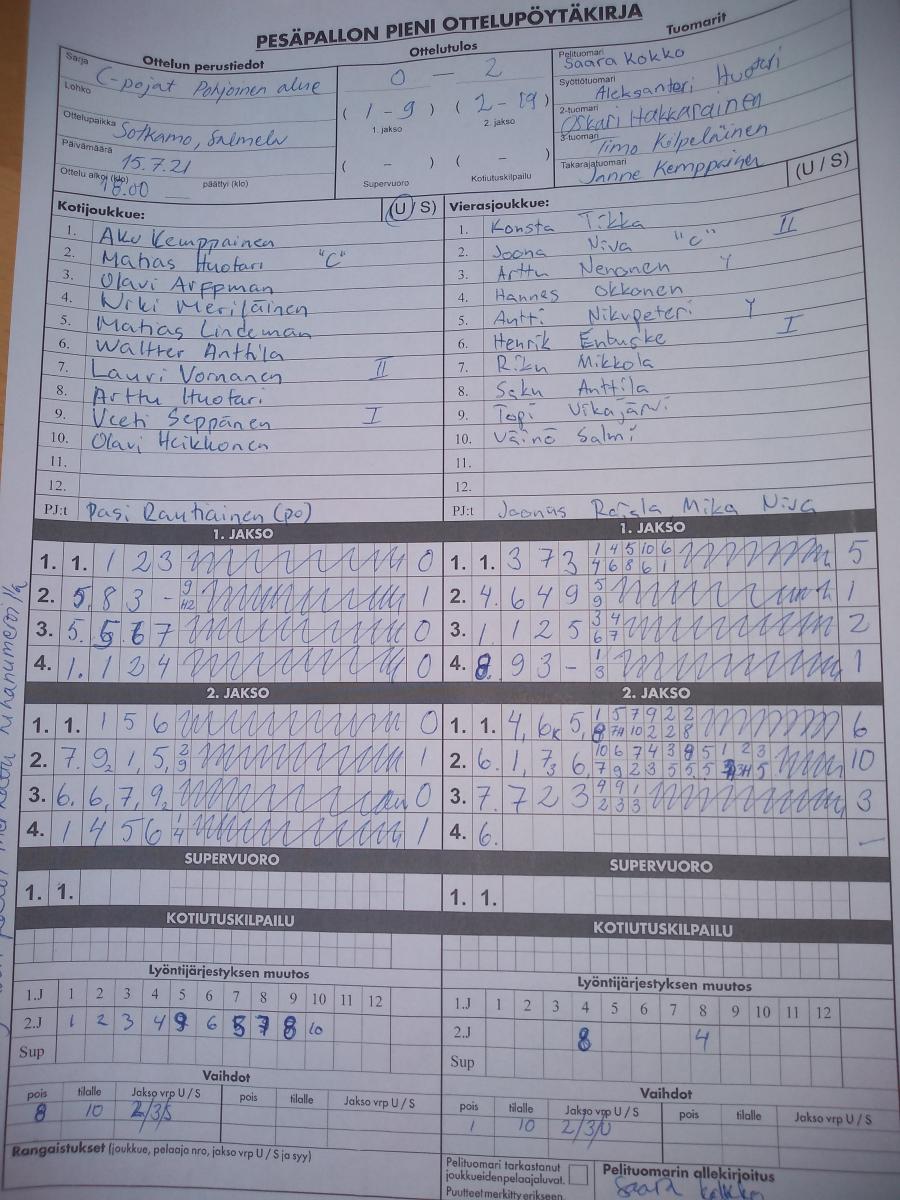 PESÄPALLON PIENI OTTELUPÖYTÄKIRJA
Ottelun perustiedot
Ottelutulos
Tuomarit
Sarja C-pojat Pohjoinen alue
Lohko
Ottelupaikka Sotkamo, Salmelu
Päivämäärä 15.7.21
Ottelu alkoi (klo) 18.00 päättyi (klo)
0 – 2
( 1 - 9 ) ( 2 - 19 )
1. jakso 2. jakso
( - ) ( - )
Supervuoro Kotiutuskilpailu
Pelituomari Saara Kokko
Syöttötuomari Aleksanteri Huotari
2-tuomari Oskari Hakkarainen
3-tuomari Timo Kilpeläinen
Takarajatuomari Janne Kemppainen
Kotijoukkue: (U / S)
1. Aku Kemppainen
2. Matias Huotari "C"
3. Olavi Arppman
4. Niki Meriläinen
5. Matias Lindeman
6. Waltter Anttila
7. Lauri Vornanen II
8. Arttu Huotari
9. Veeti Seppänen I
10. Olavi Heikkonen
11.
12.
PJ:t Pasi Rautiainen (po)
Vierasjoukkue: (U / S)
1. Konsta Tikka II
2. Joona Niva "C"
3. Arttu Nenonen Y
4. Hannes Okkonen
5. Antti Nikupeteri Y
6. Henrik Enbuske I
7. Riku Mikkola
8. Saku Anttila
9. Topi Vikajärvi
10. Väinö Salmi
11.
12.
PJ:t Joonas Mika Niva
1. JAKSO
1. 1. 1 2 3 0
2. 5. 8 3 - 9 H2 1
3. 5. 5 6 7 0
4. 1. 1 2 4 0
1. JAKSO
1. 1. 3 7 3 1 4 5 10 6 5
4 6 8 6 1
2. 4. 6 4 9 5 9 1
3. 1. 1 2 5 3 4 2
6 7
4. 8. 9 3 - 1 3 1
2. JAKSO
1. 1. 1 5 6 0
2. 7. 9 1, 5, 1
3. 6. 6, 7, 9 0
4. 1 4 5 6 1 4 1
2. JAKSO
1. 1. 4, 6 5, 1 5 7 9 2 2 6
8 7H 10 2 2 8
2. 6. 1, 7 6, 10 6 7 4 3 5 1 2 3 10
7 9 2 3 5 5 5
3. 7. 7 2 3 9 9 1 3
2 3 3
4. 6. –
SUPERVUORO
1. 1.
SUPERVUORO
1. 1.
KOTIUTUSKILPAILU
KOTIUTUSKILPAILU
Lyöntijärjestyksen muutos
1.J 1 2 3 4 5 6 7 8 9 10 11 12
2.J 1 2 3 4 9 6 5 7 8 10
Sup
Lyöntijärjestyksen muutos
1.J 1 2 3 4 5 6 7 8 9 10 11 12
2.J 8 4
Sup
Vaihdot
pois tilalle Jakso vrp U / S pois tilalle Jakso vrp U / S
8 10 2/3/S
Vaihdot
pois tilalle Jakso vrp U / S pois tilalle Jakso vrp U / S
1 10 2/3/U
Rangaistukset (joukkue, pelaaja nro, jakso vrp U / S ja syy)
Pelituomari tarkastanut
joukkueiden pelaajaluvat.
Puutteet merkitty erikseen.
Pelituomarin allekirjoitus
Saara Kokko